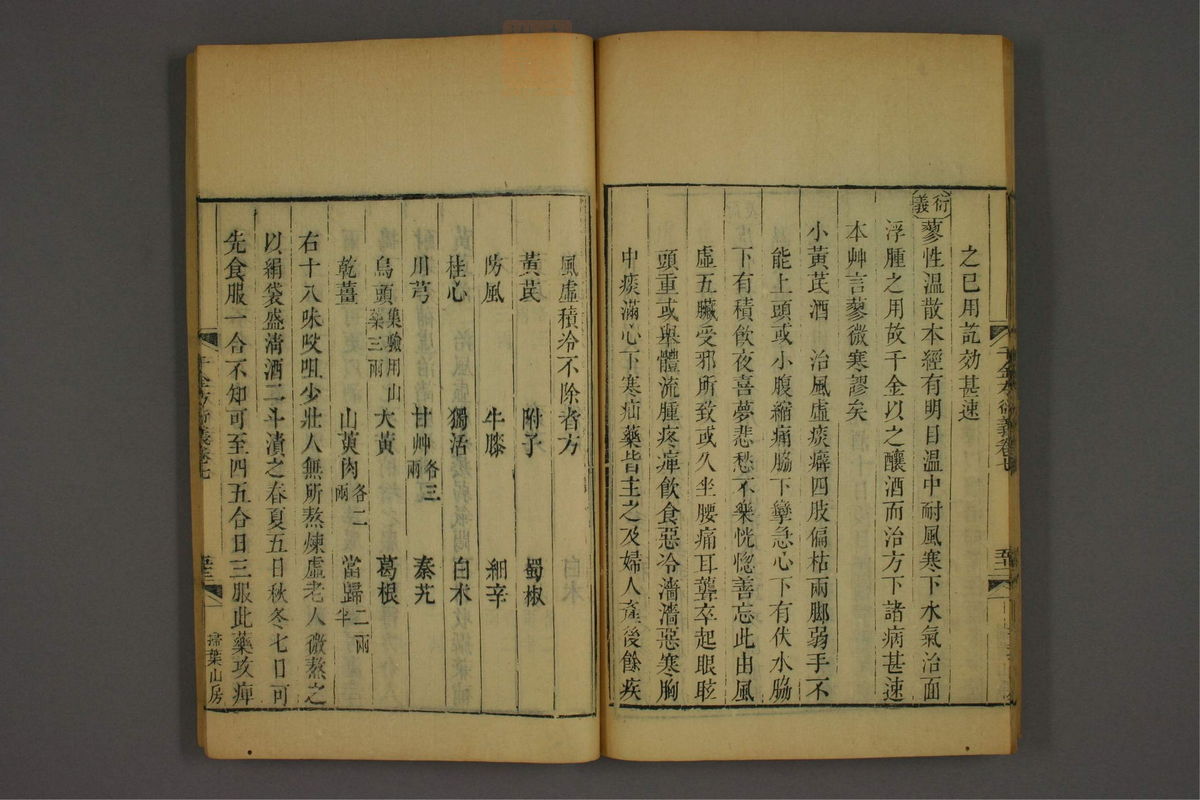 之已用訖効甚速
衍義
蓼性溫散本經有明目溫中耐風寒下水氣治面
浮腫之用故千金以之釀酒而治方下諸病甚速
本艸言蓼微寒謬矣
小黃芪酒 治風虛痰癖四肢偏枯兩脚弱手不
能上頭或小腹縮痛脇下攣急心下有伏水脇
下有積飲夜喜夢悲愁不樂恍惚善忘此由風
虛五臟受邪所致或久坐腰痛耳聾卒起眼眩
頭重或舉體流腫疼痺飲食惡冷濇濇惡寒胸
中痰滿心下寒疝藥皆主之及婦人產後餘疾
千金方衍義卷七
風虛積冷不除者方
黃芪 附子 蜀椒
防風 牛膝 細辛
桂心 獨活 白朮
川芎 甘艸各三兩 秦艽
烏頭集驗用山藥三兩 大黃 葛根
乾薑 山萸肉各二兩 當歸二兩半
右十八味㕮咀少壯人無所熬煉虛老人微熬之
以絹袋盛淸酒二斗漬之春夏五日秋冬七日可
先食服一合不知可至四五合日三服此藥攻痺
千金方衍義卷七
掃葉山房